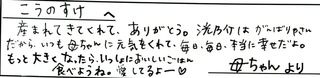 こうのすけ へ
産まれてきてくれて、ありがとう。洸乃介は がんばりやさん
だから、いつも母ちゃんに元気をくれて、毎日、毎日、本当に幸せだよ。
もっと大きくなったら、いっしょにおいしいごはん
食べようね。愛してるよー♡
母ちゃん より